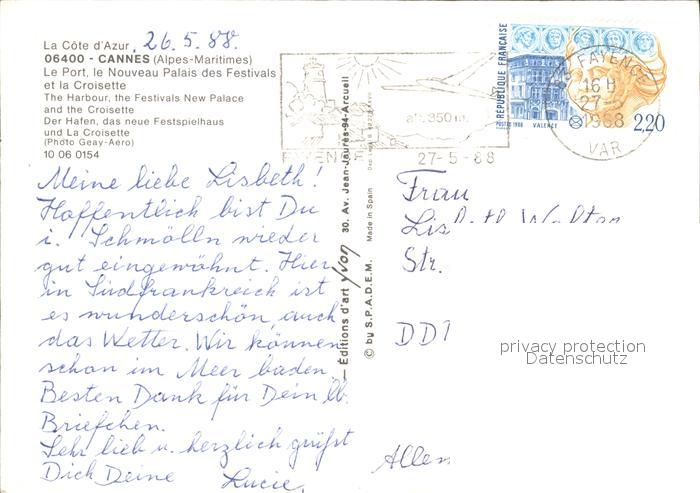 La Côte d'Azur, 26.5.88.
06400 - CANNES (Alpes-Maritimes)
Le Port, le Nouveau Palais des Festivals
et la Croisette
The Harbour, the Festivals New Palace
and the Croisette
Der Hafen, das neue Festspielhaus
und La Croisette
(Photo Geay-Aéro)
10 06 0154
Meine liebe Lisbeth!
Hoffentlich bist Du
i. Schmölln wieder
gut eingewöhnt. Hier
in Südfrankreich ist
es wunderschön, auch
das Wetter. Wir können
schon im Meer baden.
Besten Dank für Dein lb.
Briefchen.
Sehr lieb u. herzlich grüßt
Dich Deine Lucie.
— Éditions d'art yvon 30. Av. Jean-Jaurès-94-Arcueil
© by S.P.A.D.E.M. Made in Spain
alt. 350 m.
27-5-88
RÉPUBLIQUE FRANÇAISE
POSTES 1988 VALENCE
2,20
83 FAYENCE
16 H
27-5
1988
VAR
Frau
Str.
DD
privacy protection
Datenschutz